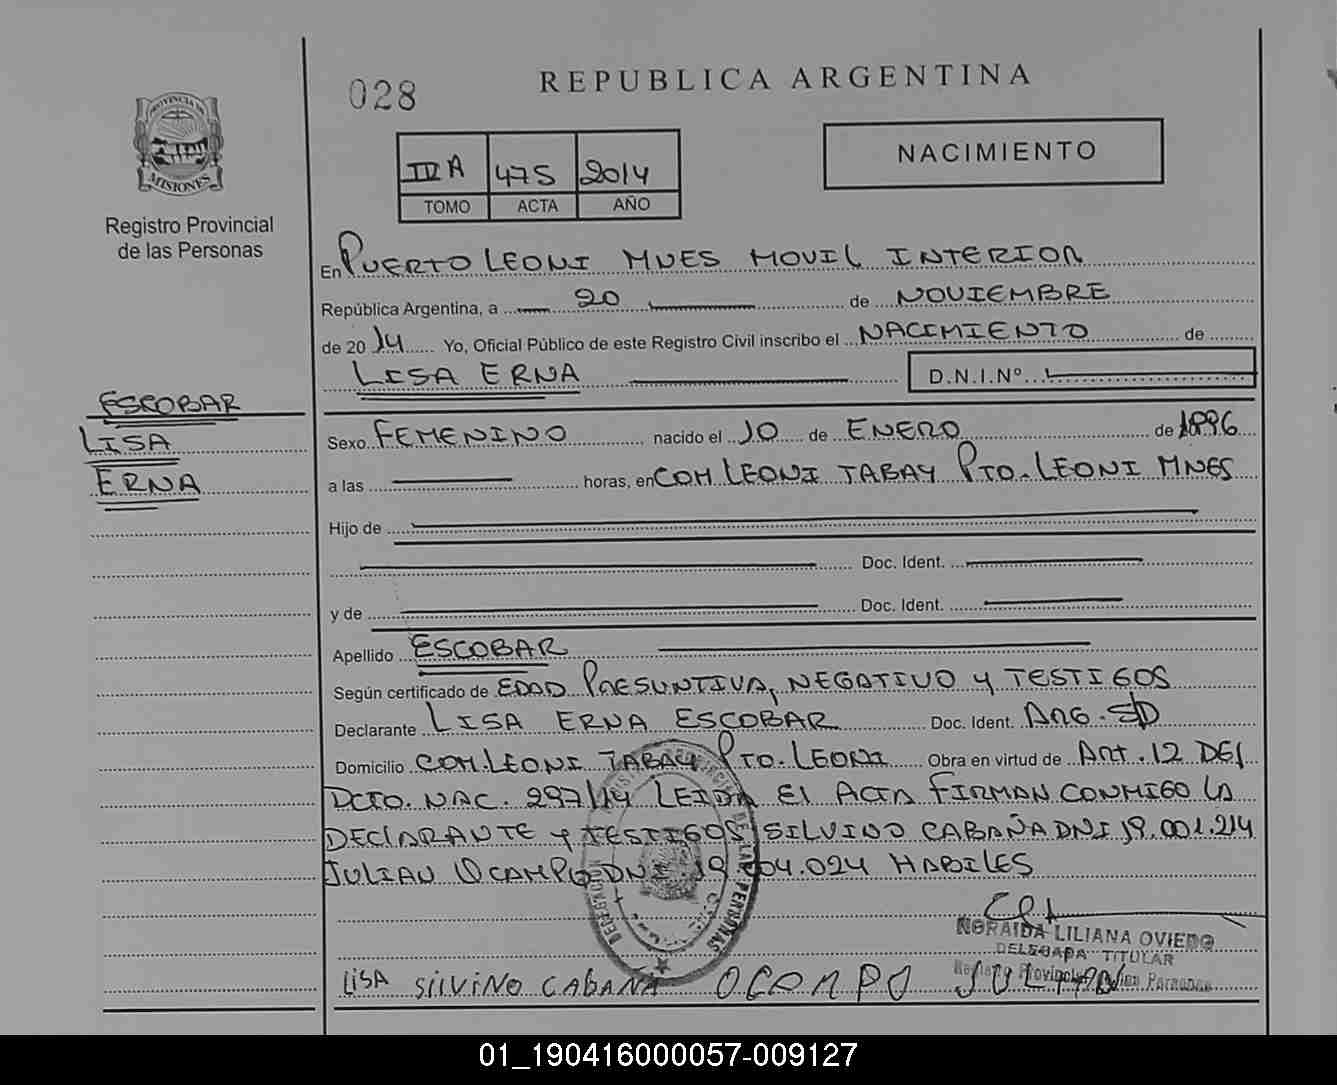 028
REPUBLICA ARGENTINA
PROVINCIA DE
MISIONES
Registro Provincial
de las Personas
IV A 475 2014
TOMO ACTA AÑO
NACIMIENTO
En PUERTO LEONI MNES MOVIL INTERIOR
República Argentina, a 20 de NOVIEMBRE
de 2014 Yo, Oficial Público de este Registro Civil inscribo el NACIMIENTO de
LISA ERNA D.N.I.Nº
ESCOBAR
LISA
ERNA
Sexo FEMENINO nacido el 10 de ENERO de 1996
a las horas, en COM LEONI TABAY PTO. LEONI MNES
Hijo de
Doc. Ident.
y de Doc. Ident.
Apellido ESCOBAR
Según certificado de EDAD PRESUNTIVA, NEGATIVO Y TESTIGOS
Declarante LISA ERNA ESCOBAR Doc. Ident. ARG. SD
Domicilio COM. LEONI TABAY PTO. LEONI Obra en virtud de ART. 12 DEL
DCTO. NAC. 297/14 LEIDA EL ACTA FIRMAN CONMIGO LA
DECLARANTE Y TESTIGOS SILVINO CABAÑA DNI 19.001.214
JULIAN OCAMPO DNI 19.004.024 HABILES
DELEGACION DE LAS PERSONAS
NORAIDA LILIANA OVIEDO
DELEGADA TITULAR
Registro Provincial de las Personas
LISA SILVINO CABAÑA OCAMPO JULIAN
01_190416000057-009127